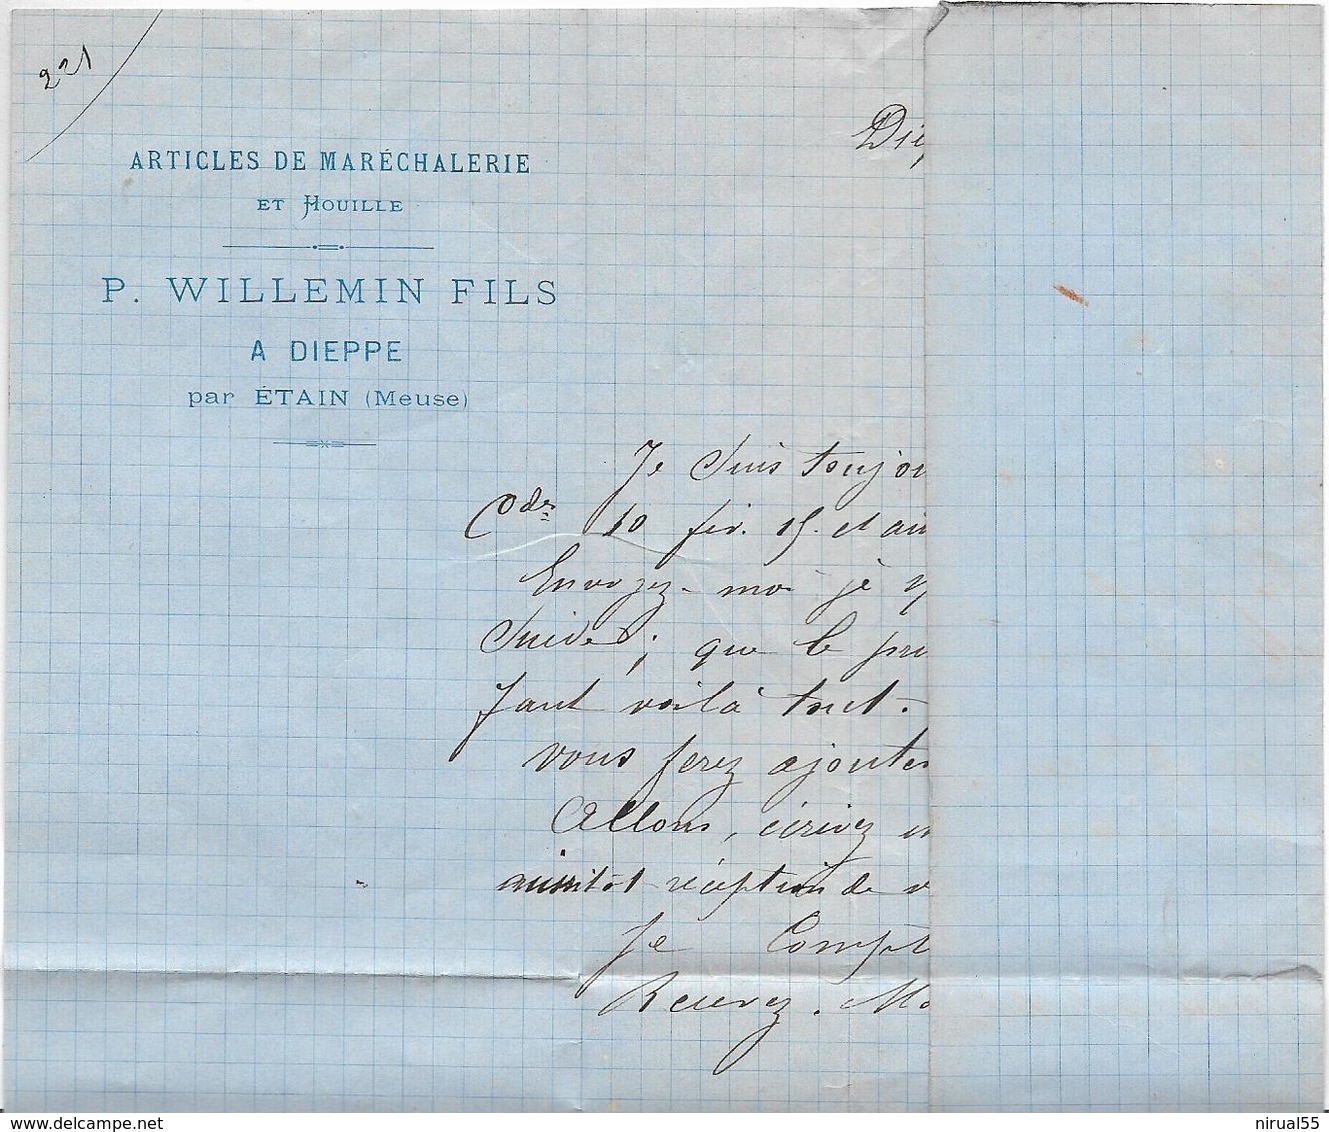 221
Die
ARTICLES DE MARÉCHALERIE
ET HOUILLE
P. WILLEMIN FILS
A DIEPPE
par ÉTAIN (Meuse)
Je suis toujou
10 fév. 15. et ain
Envoyez-moi je
Suivez ; que le pri
faut voilà tout.
vous ferez ajouter
Allons, écrivez
aussitôt réception de v
Je Compt
Recevez. Mo
delcampe.net
nirual55